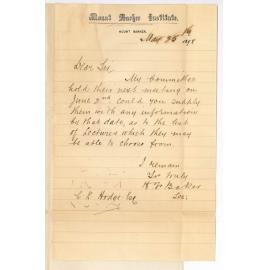 Mount Barker Institute,
MOUNT BARKER,
May 25th 1898
Dear Sir
My Committee
hold their next meeting on
June 2nd could you supply
them with any information
by that date, as to the list
of Lectures which they may
be able to choose from.
I remain
Yr truly
H
Sec:
C. R. Hodge Esq